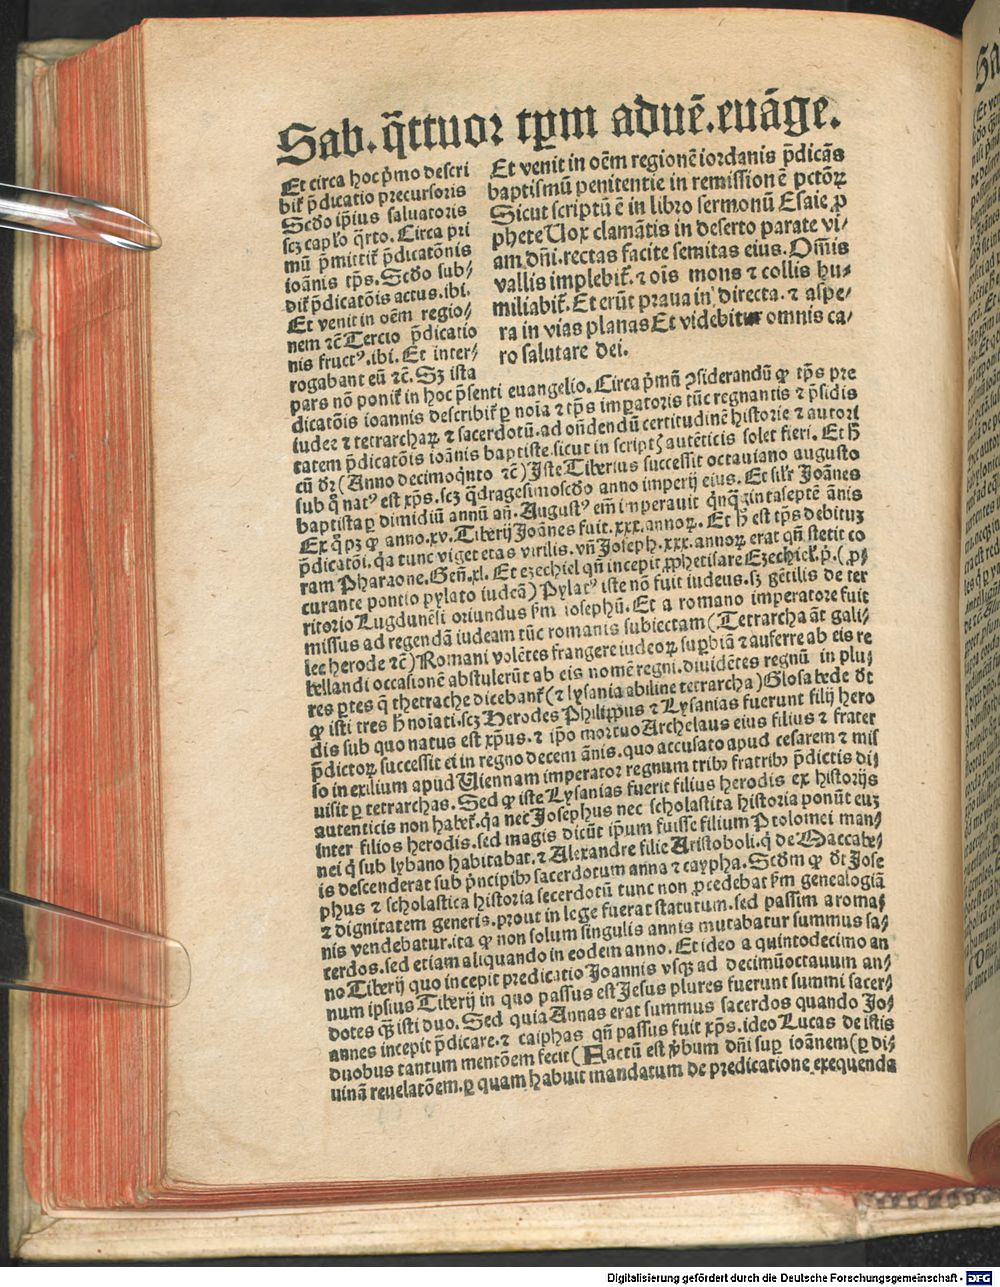 Sab. q̄ttuor tp̄m aduē. euāge.
Et circa hoc p̄mo descri
bit̄ p̄dicatio precursoris
Scd̄o ip̄ius saluatoris
scz cap̄lo q̄rto. Circa pri
mū p̄mittit̄ p̄dicatōnis
ioānis tp̄s. Scd̄o sub-
dit̄ p̄dicatōis actus. ibi.
Et venit in oēm regio-
nem ⁊c̄ Tercio p̄dicatio
nis fructꝰ. ibi. Et inter-
rogabant eū ⁊c̄. Sz ista
Et venit in oēm regionē iordanis p̄dicās
baptismū penitentie in remissionē pctōꝝ
Sicut scriptū ē in libro sermonū Esaie ꝓ
phete Uox clamātis in deserto parate vi-
am dn̄i. rectas facite semitas eius. Om̄is
vallis implebit̄. ⁊ ois mons ⁊ collis hu-
miliabit̄. Et erūt praua in directa. ⁊ aspe-
ra in vias planas Et videbitur omnis ca-
ro salutare dei.
pars nō ponit̄ in hoc p̄senti euangelio. Circa p̄mū ꝯsiderandū ꝙ tp̄s pre
dicatōis ioannis describit̄ ꝑ noīa ⁊ tp̄s imꝑatoris tūc regnantis ⁊ p̄sidis
iudee ⁊ tetrarchaꝝ ⁊ sacerdotū. ad on̄dendū certitudinē historie ⁊ autori
tatem p̄dicatōis ioānis baptiste. sicut in scriptꝭ autēticis solet fieri. Et h̄
cū dr̄ (Anno decimoqnto ⁊c̄) Iste Tiberius successit octauiano augusto
sub q̄ natꝰ est xp̄s. scz q̄dragesimoscd̄o anno imperij eius. Et sil̄r Joānes
baptista ꝑ dimidiū annū an̄. Augustꝰ em̄ imperauit q̄nq̄gintaseptē ānis
Ex q̄ pz ꝙ anno. xv. Tiberij Joānes fuit. xxx. annoꝝ. Et h̄ est tp̄s debituz
p̄dicatōi. q̄a tunc viget etas virilis. vn̄ Joseph. xxx. annoꝝ erat qn̄ stetit co
ram Pharaone. Gen̄. xl. Et ezechiel qn̄ incepit ꝓphetisare Ezechiel. p̄. (ꝓ-
curante pontio pylato iudeā) Pylatꝰ iste nō fuit iudeus. sz gētilis de ter
ritorio Lugdunēsi oriundus ẜm iosephū. Et a romano imperatore fuit
missus ad regendā iudeam tūc romanis subiectam (Tetrarcha āt gali-
lee herode ⁊c̄) Romani volētes frangere iudeoꝝ suꝑbiā ⁊ auferre ab eis re
bellandi occasionē abstulerūt ab eis nomē regni. diuidētes regnū in plu-
res ꝑtes q̄ thetrache dicebant̄ (⁊ lysania abiline tetrarcha) Glosa bede dt̄
ꝙ isti tres h̄ noīati. scz Herodes Philippus ⁊ Lysanias fuerunt filij hero
dis sub quo natus est xp̄us. ⁊ ip̄o mortuo Archelaus eius filius ⁊ frater
p̄dictoꝝ successit ei in regno decem ānis. quo accusato apud cesarem ⁊ mis
so in exilium apud Viennam imperator regnum tribꝰ fratribꝰ p̄dictis di-
uisit ꝑ tetrarchas. Sed ꝙ iste Lysanias fuerit filius herodis ex historijs
autenticis non habet̄. q̄a nec Josephus nec scholastica historia ponūt euz
inter filios herodis. sed magis dicūt ip̄um fuisse filium Ptolomei man-
nei q̄ sub lybano habitabat. ⁊ Alexandre filie Aristoboli. q̄ de Maccabe-
is descenderat sub p̄ncipibꝰ sacerdotum anna ⁊ caypha. Scd̄m ꝙ dt̄ Jose
phus ⁊ scholastica historia secerdotū tunc non ꝓcedebat ẜm genealogiā
⁊ dignitatem generis. prout in lege fuerat statutum. sed passim a roma-
nis vendebatur. ita ꝙ non solum singulis annis mutabatur summus sa-
cerdos. sed etiam aliquando in eodem anno. Et ideo a quintodecimo an
no Tiberij quo incepit predicatio Joannis vsqꝫ ad decimūoctauum an-
num ipsius Tiberij in quo passus est Jesus plures fuerunt summi sacer-
dotes qꝫ isti duo. Sed quia Annas erat summus sacerdos quando Jo-
annes incepit p̄dicare. ⁊ caiphas qn̄ passus fuit xp̄s. ideo Lucas de istis
duobus tantum mentōem fecit (Factū est v̄bum dn̄i suꝑ ioānem (ꝑ di-
uinā reuelatōem. ꝑ quam habuit mandatum de predicatione exequenda
Digitalisierung gefördert durch die Deutsche Forschungsgemeinschaft - DFG